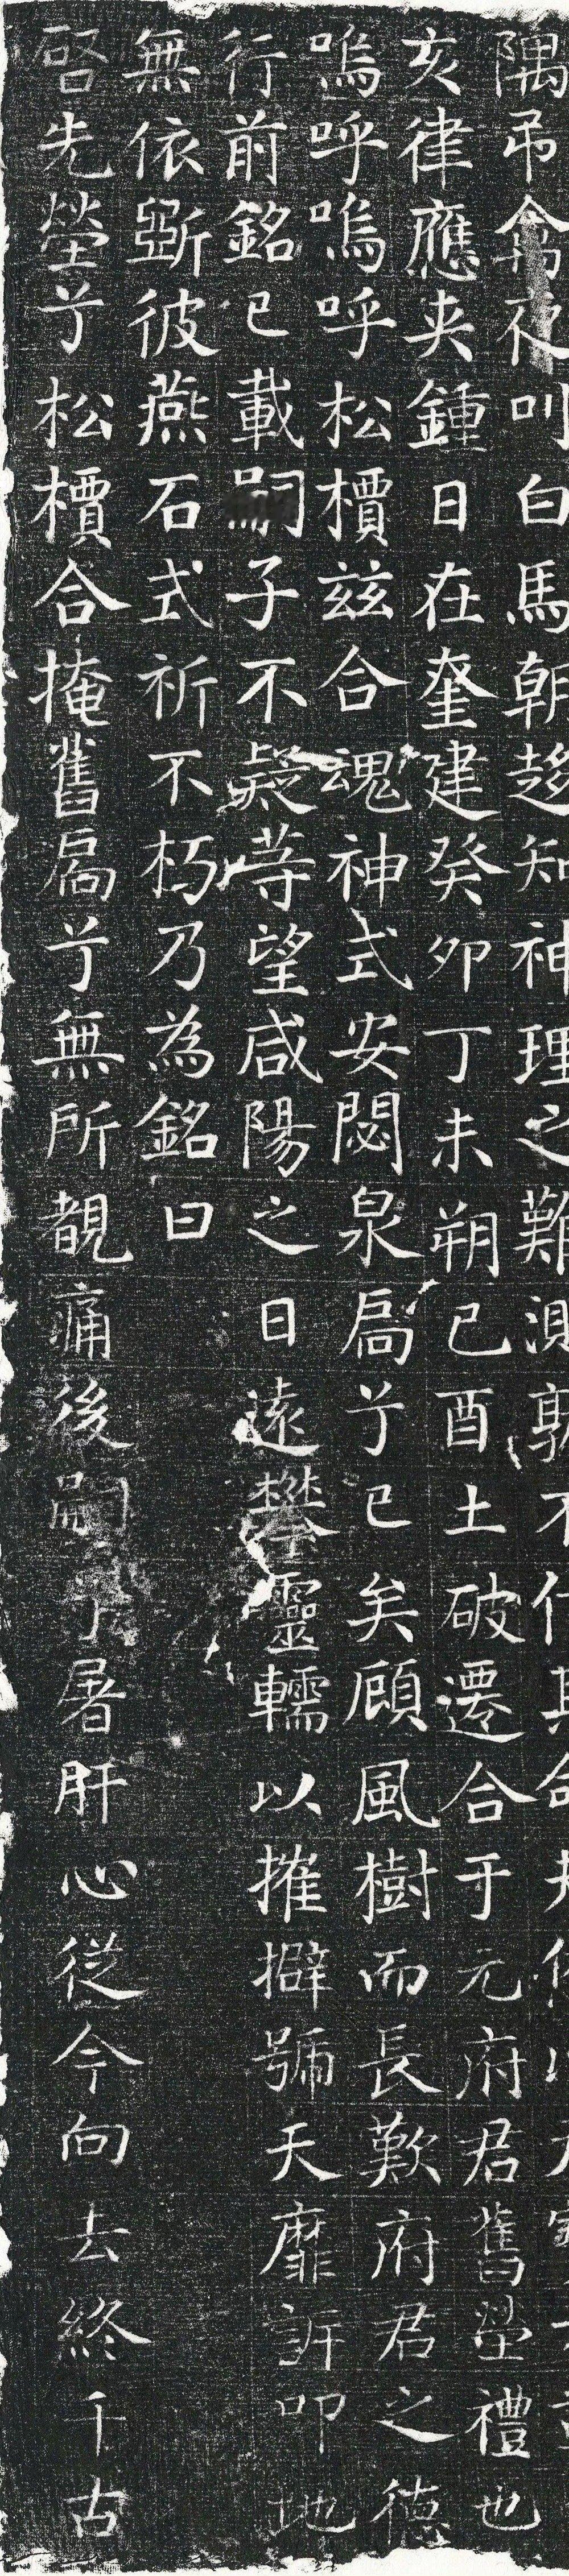 隅弔禽夜叫白馬朝趍知神理之難測孰
亥律應夾鍾日在奎建癸卯丁未朔己酉土破遷合于元府君舊塋禮也
嗚呼嗚呼松檟茲合魂神式安閟泉扃兮已矣顧風樹而長歎府君之德
行前銘已載嗣子不疑等望咸陽之日遠攀靈轜以摧擗號天靡訴叩地
無依斲彼燕石式祈不朽乃為銘曰
啓先塋兮松檟合掩舊扃兮無所覩痛後嗣兮屠肝心從今向去終千古